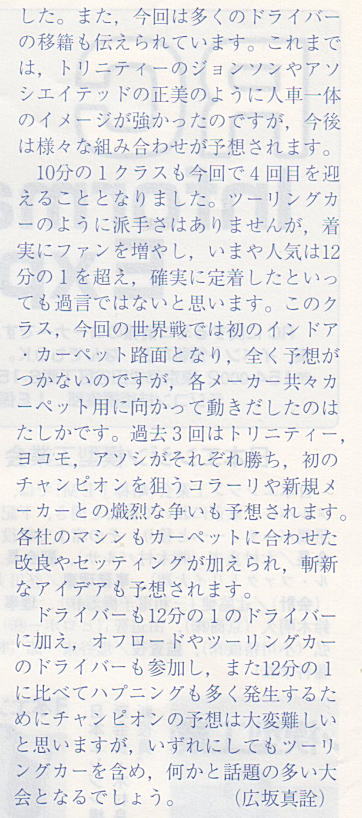 した。また，今回は多くのドライバー
の移籍も伝えられています。これまで
は，トリニティーのジョンソンやアソ
シエイテッドの正美のように人車一体
のイメージが強かったのですが，今後
は様々な組み合わせが予想されます。
　10分の１クラスも今回で４回目を迎
えることとなりました。ツーリングカ
ーのように派手さはありませんが，着
実にファンを増やし，いまや人気は12
分の１を超え，確実に定着したといっ
ても過言ではないと思います。このク
ラス，今回の世界戦では初のインドア
・カーペット路面となり，全く予想が
つかないのですが，各メーカー共々カ
ーペット用に向かって動きだしたのは
たしかです。過去３回はトリニティー，
ヨコモ，アソシがそれぞれ勝ち，初の
チャンピオンを狙うコラーリや新規メ
ーカーとの熾烈な争いも予想されます。
各社のマシンもカーペットに合わせた
改良やセッティングが加えられ，斬新
なアイデアも予想されます。
　ドライバーも12分の１のドライバー
に加え，オフロードやツーリングカー
のドライバーも参加し，また12分の１
に比べてハプニングも多く発生するた
めにチャンピオンの予想は大変難しい
と思いますが，いずれにしてもツーリ
ングカーを含め，何かと話題の多い大
会となるでしょう。　　　（広坂真詮）